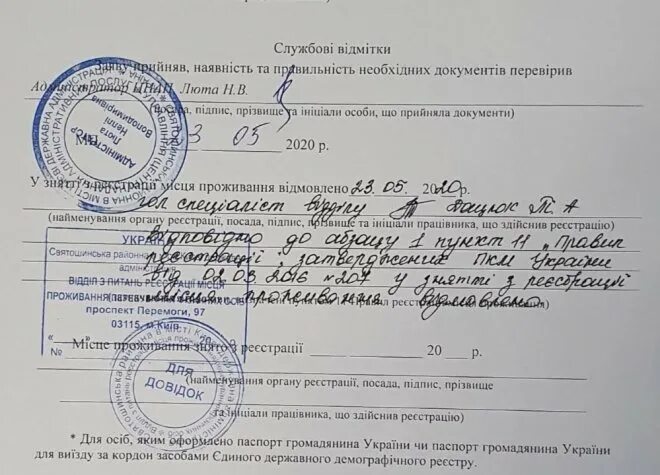 Службові відмітки
Заяву прийняв, наявність та правильність необхідних документів перевірив
Адміністратор ЦНАП Люта Н.В.
(посада, підпис, прізвище та ініціали особи, що прийняла документи)
23 05 2020 р.
У знятті з реєстрації місця проживання відмовлено 23.05. 2020р.
гол спеціаліст відділу Дацюк Т. А
(найменування органу реєстрації, посада, підпис, прізвище та ініціали працівника, що здійснив реєстрацію)
відповідно до абзацу 1 пункт 11 „Правил
реєстрації", затверджених ПКМ України
від 02.03 2016 №207 у знятті з реєстрації
місця проживання відмовлено
УКРАЇНА
Святошинська районна
ВІДДІЛ З ПИТАНЬ РЕЄСТРАЦІЇ МІСЦЯ
ПРОЖИВАННЯ
проспект Перемоги, 97
03115, м.Київ
№
Місце проживання знято з реєстрації 20 р.
(найменування органу реєстрації, посада, підпис, прізвище
та ініціали працівника, що здійснив реєстрацію)
ДЛЯ
ДОВІДОК
АДМІНІСТРАТОР
Люта
Неллі
Володимирівна
* Для осіб, яким оформлено паспорт громадянина України чи паспорт громадянина України
для виїзду за кордон засобами Єдиного державного демографічного реєстру.